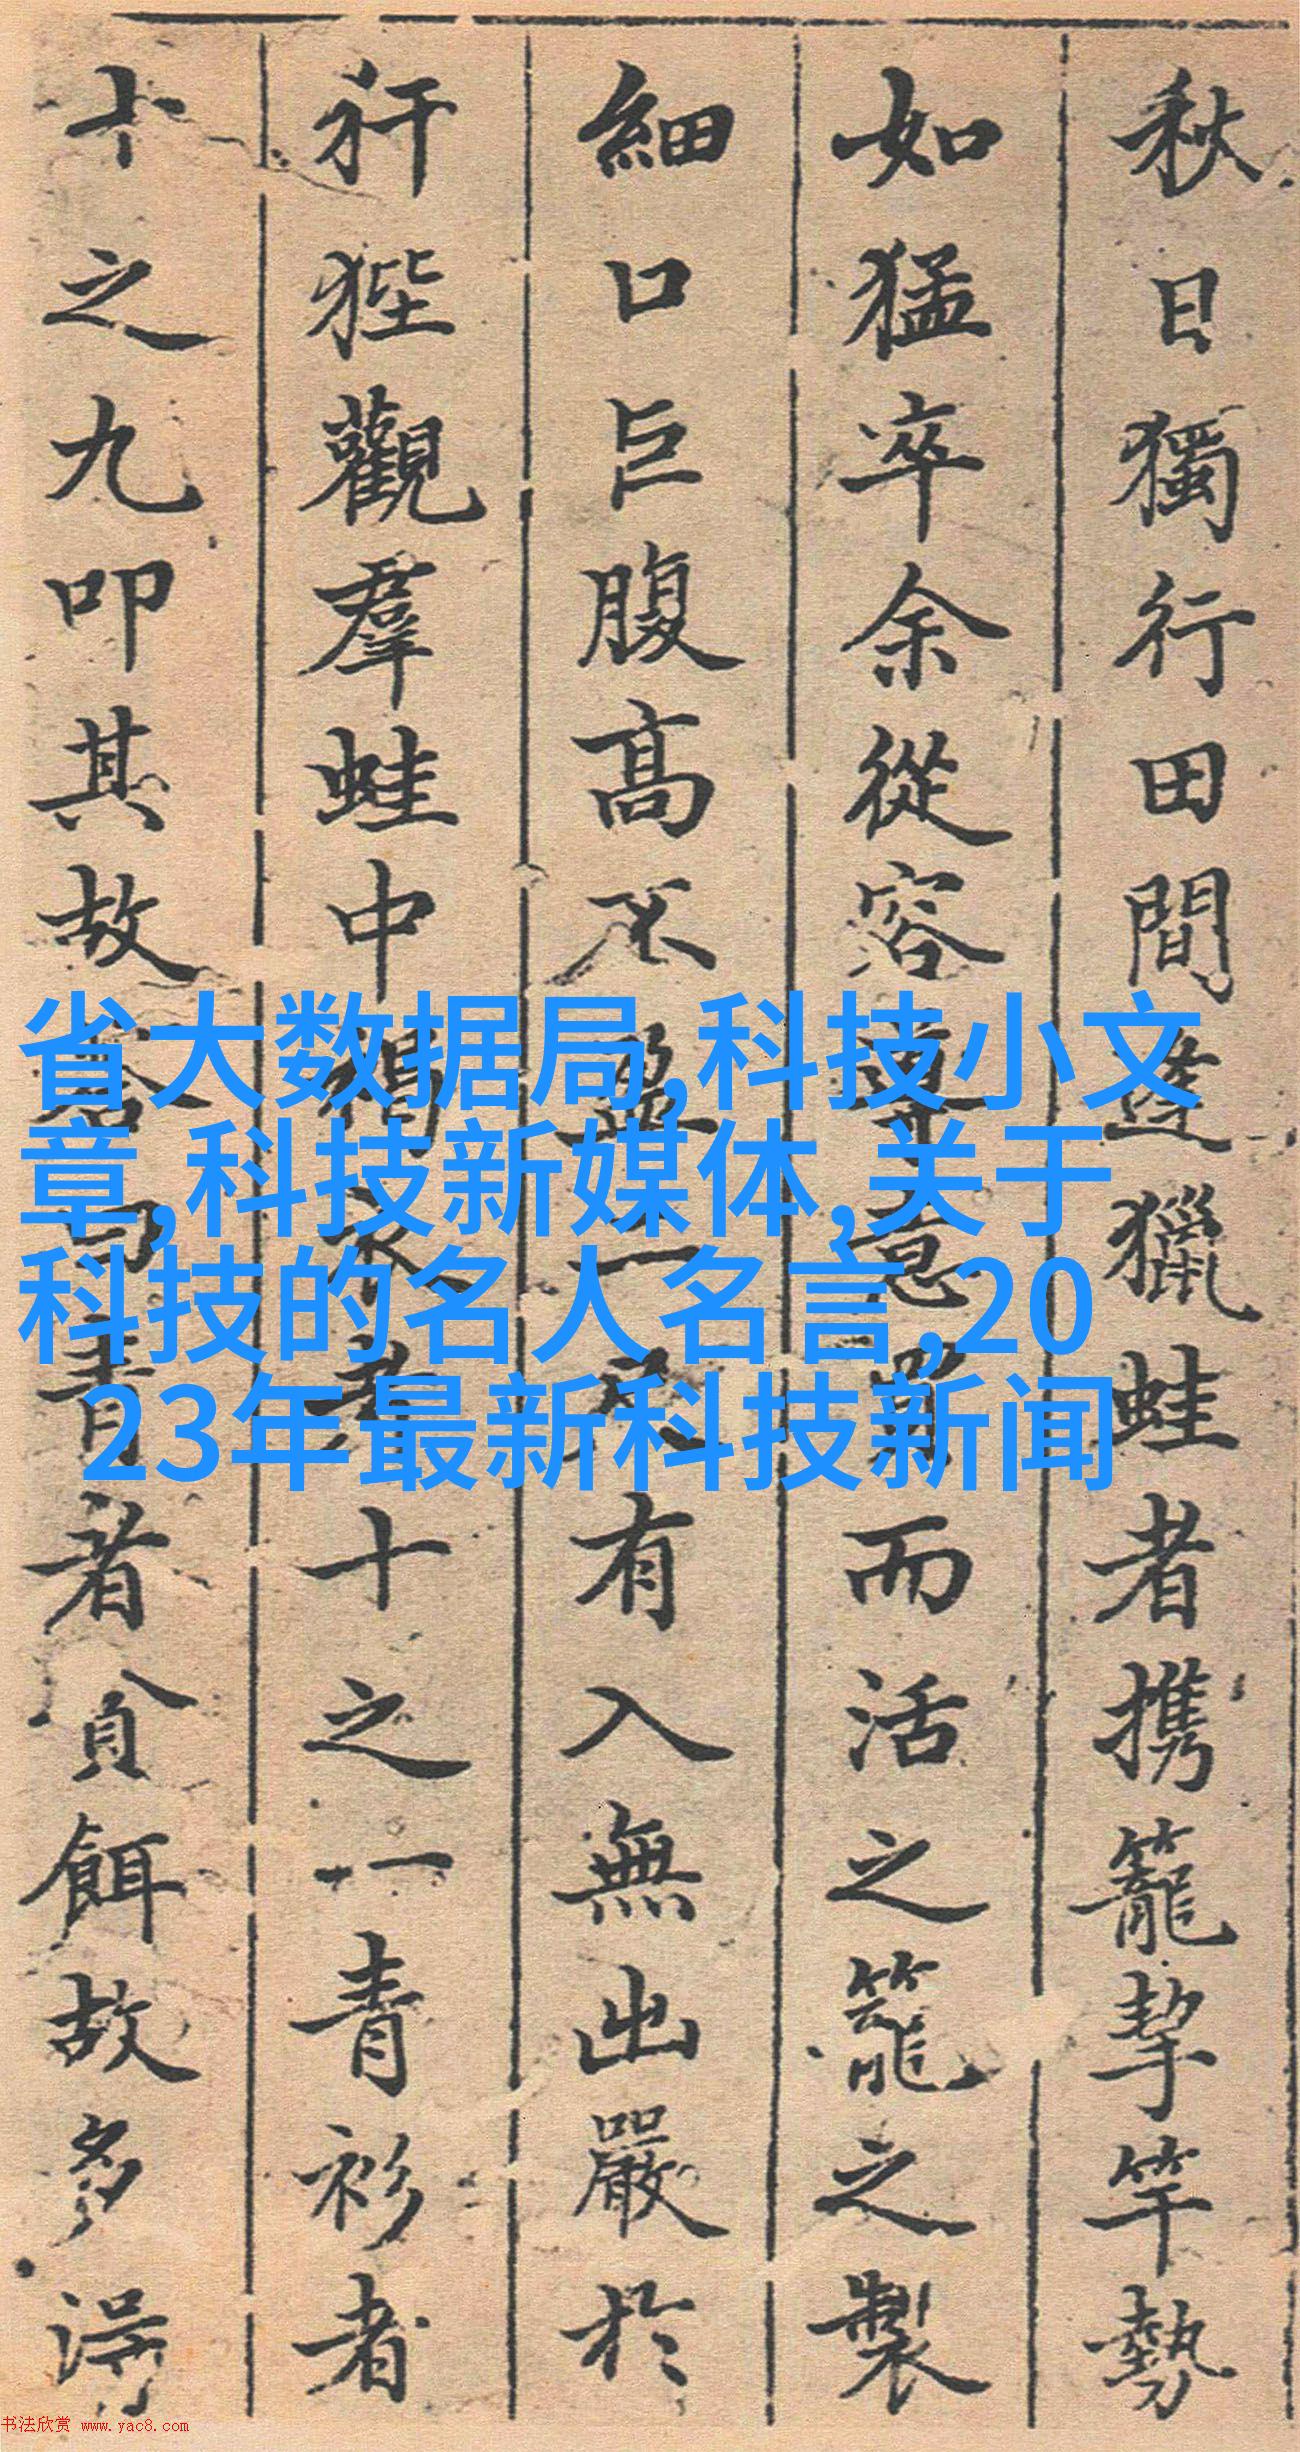 秋日獨行田間逢獵蛙者携籠挈竿勢
如猛卒余從容導意買而活之籠之製
細口巨腹高不盈尺有入無出嚴於
犴狴觀羣蛙中褐衣者十之一青衫者
十之九叩其故答曰青者貪餌故多得
省大数据局,科技小文
章,科技新媒体,关于
科技的名人名言,20
23年最新科技新闻
书法欣赏 www.yac8.com